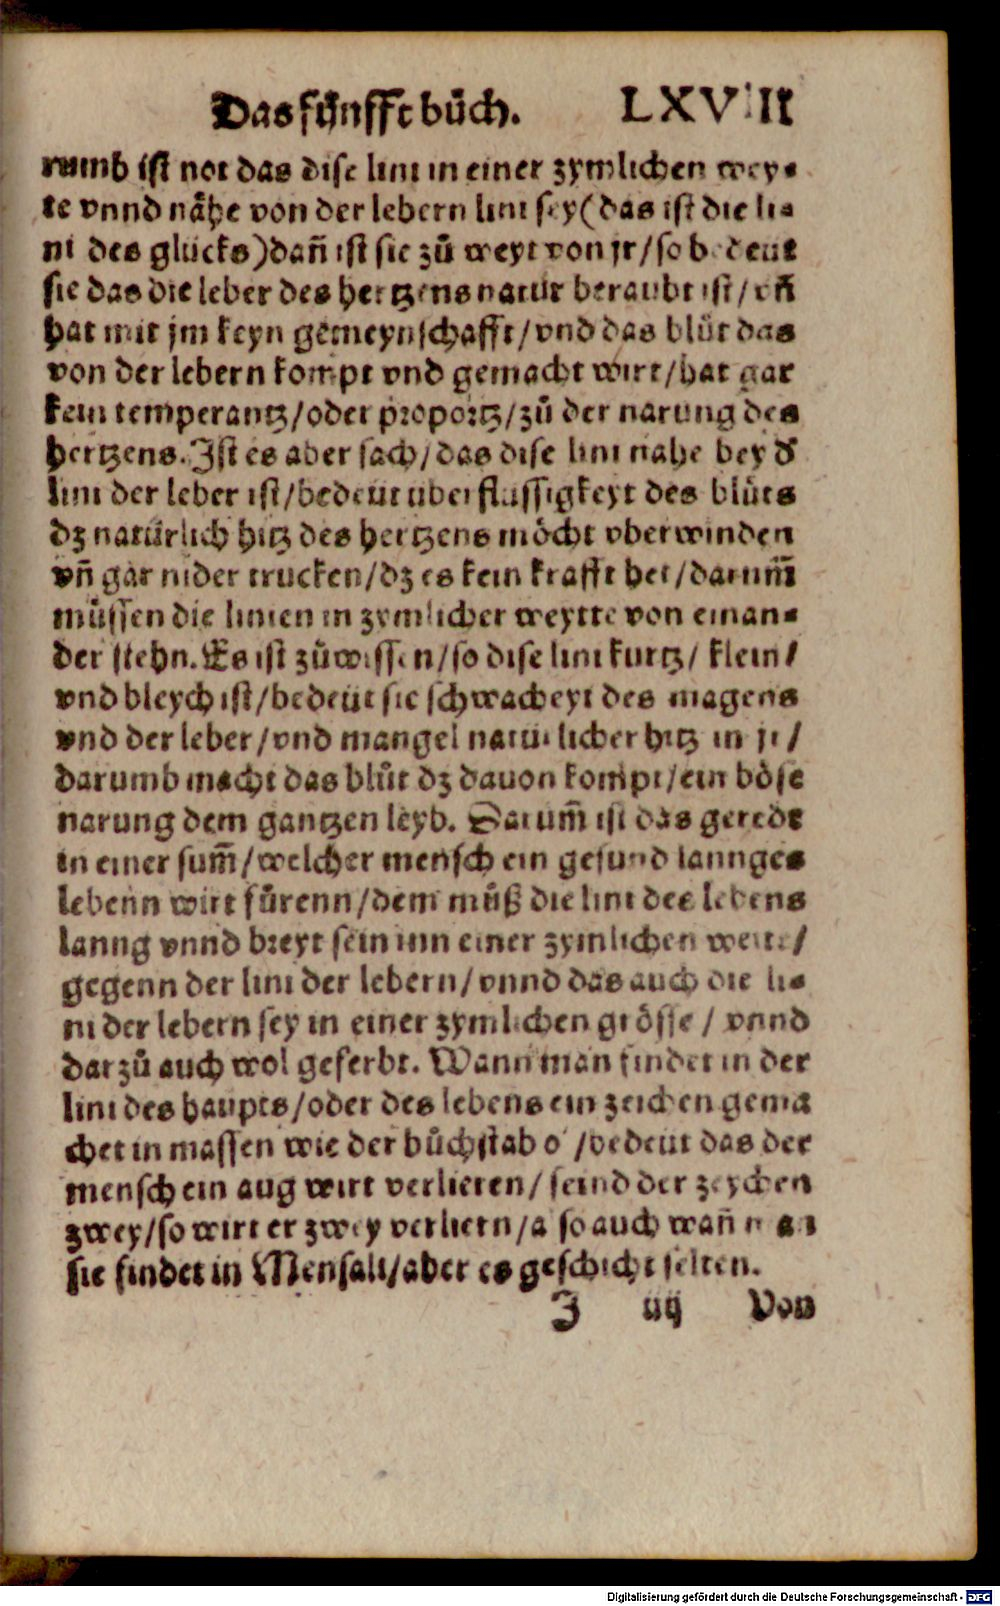 Das fünfft bůch. LXVIII
rumb ist not das dise lini in einer zymlichen wey⸗
te vnnd nähe von der lebern lini sey(das ist die li⸗
ni des glücks)dañ ist sie zů weyt von jr/so bedeut
sie das die leber des hertzens natur beraubt ist/vñ
hat mit jm keyn gemeynschafft/vnd das blůt das
von der lebern kompt vnd gemacht wirt/hat gar
kein temperantz/oder proportz/zů der narung des
hertzens. Ist es aber sach/das dise lini nahe bey d̕
lini der leber ist/bedeut uberflüssigkeyt des blůts
dz natürlich hitz des hertzens möcht vberwinden
vñ gar nider trucken/dz es kein krafft het/darum̃
müssen die linien in zymlicher weytte von einan⸗
der stehn. Es ist zůwissen/so dise lini kurtz/ klein/
vnd bleych ist/bedeüt sie schwacheyt des magens
vnd der leber/vnd mangel natürlicher hitz in jr/
darumb macht das blůt dz dauon kompt/ein böse
narung dem gantzen leyb. Darum̃ ist das geredt
in einer sum̃/welcher mensch ein gesund lannges
lebenn wirt fürenn/dem můß die lini des lebens
lanng vnnd breyt sein inn einer zymlichen weite/
gegenn der lini der lebern/vnnd das auch die li⸗
ni der lebern sey in einer zymlichen grösse / vnnd
darzů auch wol geferbt. Wann man findet in der
lini des haupts/oder des lebens ein zeichen gema
chet in massen wie der bůchstab o /bedeut das der
mensch ein aug wirt verlieren/ seind der zeychen
zwey/so wirt er zwey verliern/also auch wañ man
sie findet in Mensali/aber es geschicht selten.
J iiij Von
Digitalisierung gefördert durch die Deutsche Forschungsgemeinschaft - DFG